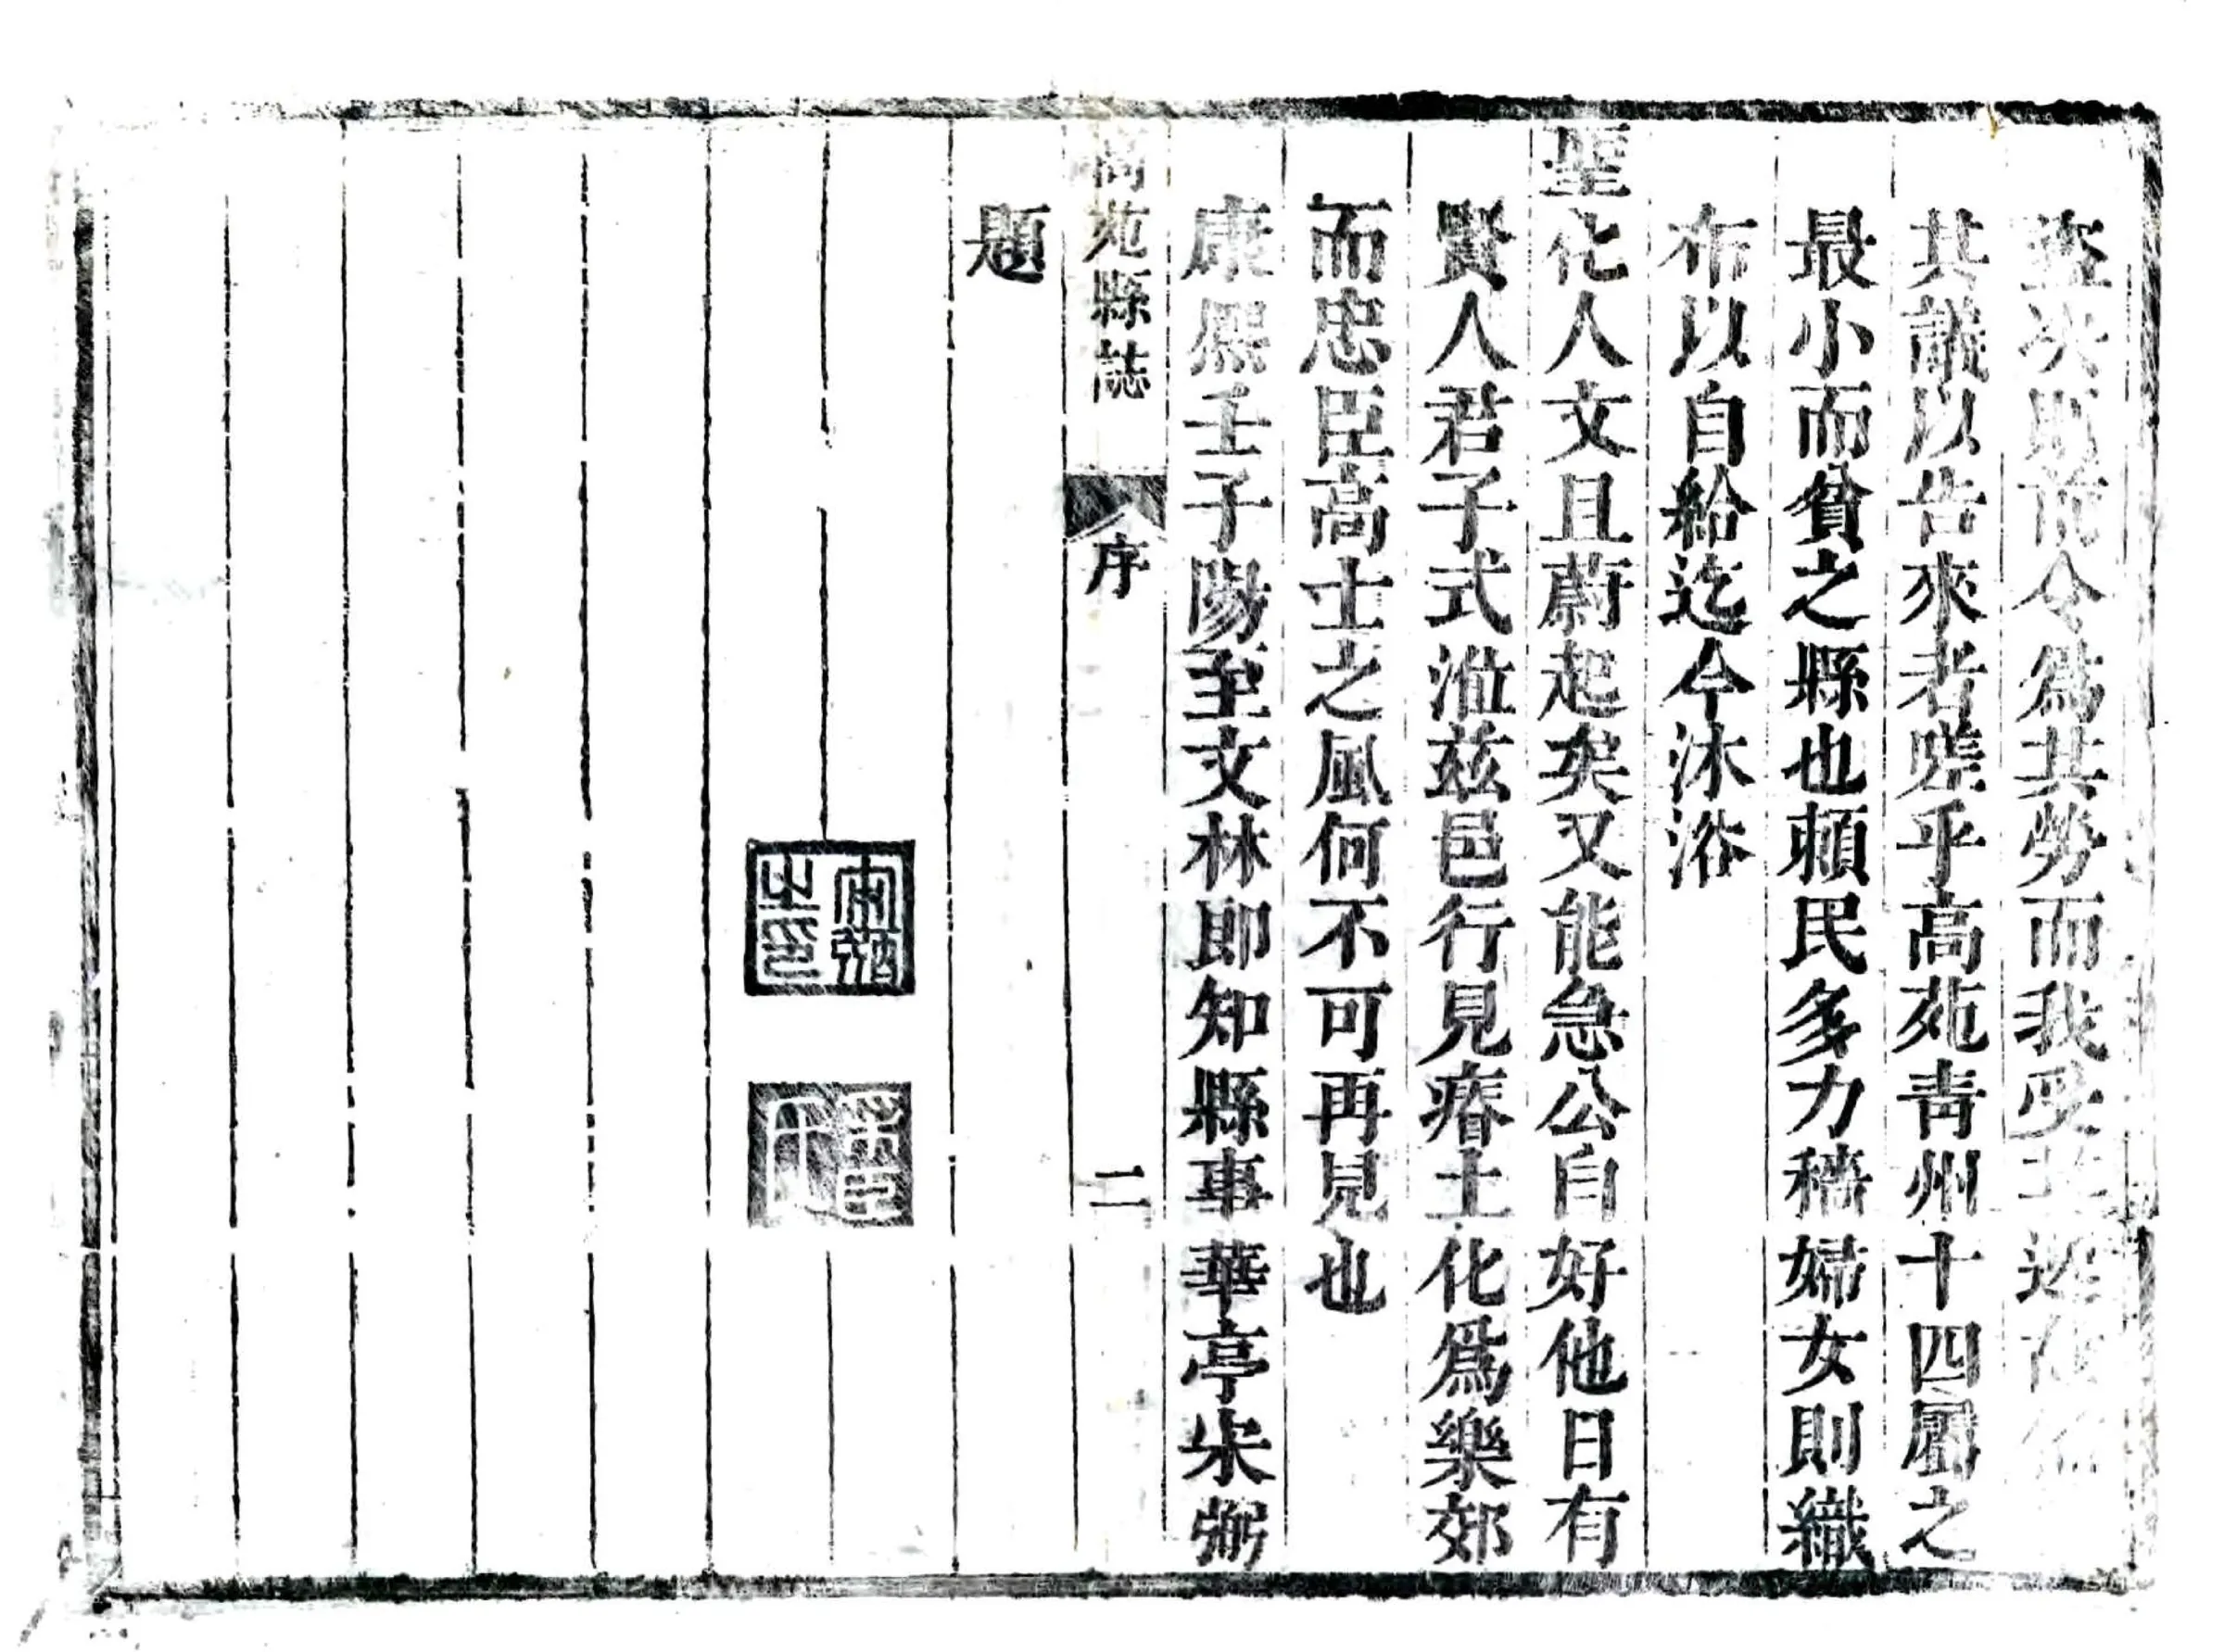 則前令爲其勞而我受其
其議以告來者嗟乎高苑青州十四屬之
最小而貧之縣也賴民多力穡婦女則織
布以自給迄今沐浴
聖化人文且蔚起矣又能急公自好他日有
賢人君子式涖茲邑行見瘠土化爲樂郊
而忠臣高士之風何不可再見也
康熙壬子陽至文林郎知縣事華亭宋弼
高苑縣誌
序
二
題
宋弼之印